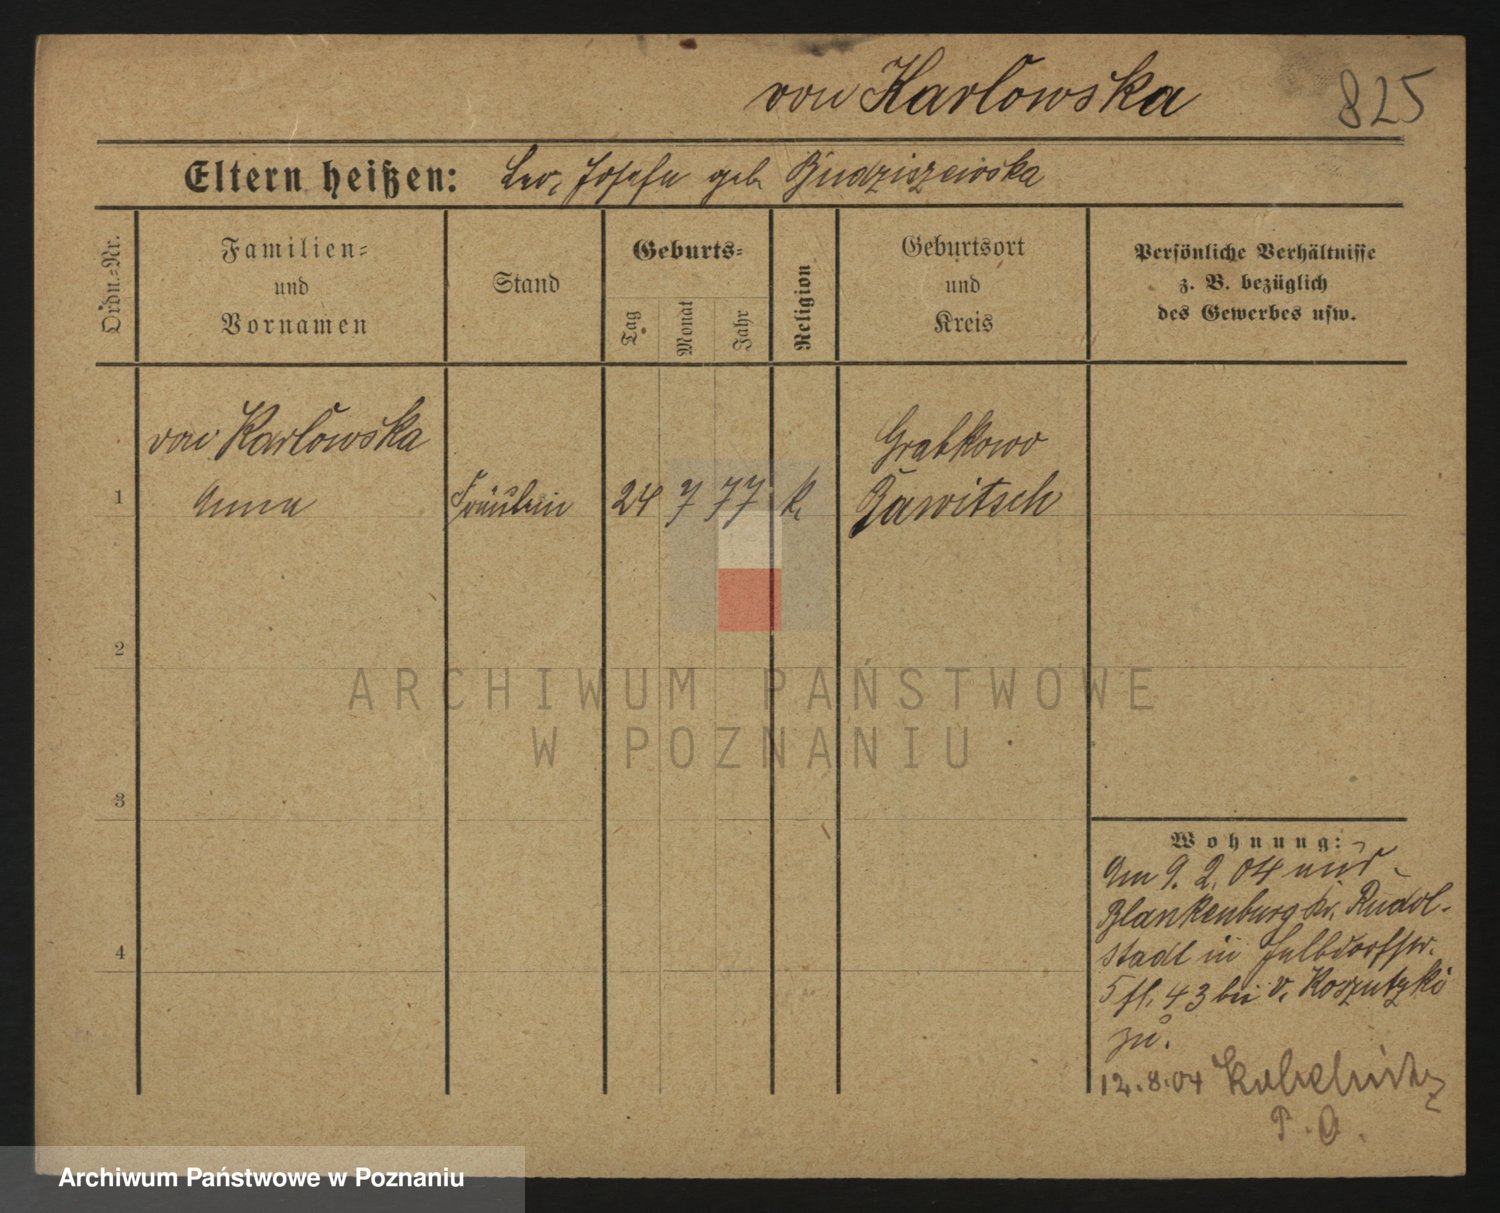 von Karlowska
825
Eltern heißen: Leo, Josefa geb. Budziszewska
Ordn.-Nr.
Familien-
und
Vornamen
Stand
Geburts-
Tag
Monat
Jahr
Religion
Geburtsort
und
Kreis
Persönliche Verhältnisse
z. B. bezüglich
des Gewerbes usw.
von Karlowska
Grabkowo
1 Anna Fräulein 24 7 77 k. Rawitsch
2
3
4
Wohnung:
Am 9. 2. 04 aus
Blankenburg Kr. Rudol-
stadt in
43 bei v. Koszutzki
zu.
12.8.04
P. A.
ARCHIWUM PAŃSTWOWE
W POZNANIU
Archiwum Państwowe w Poznaniu